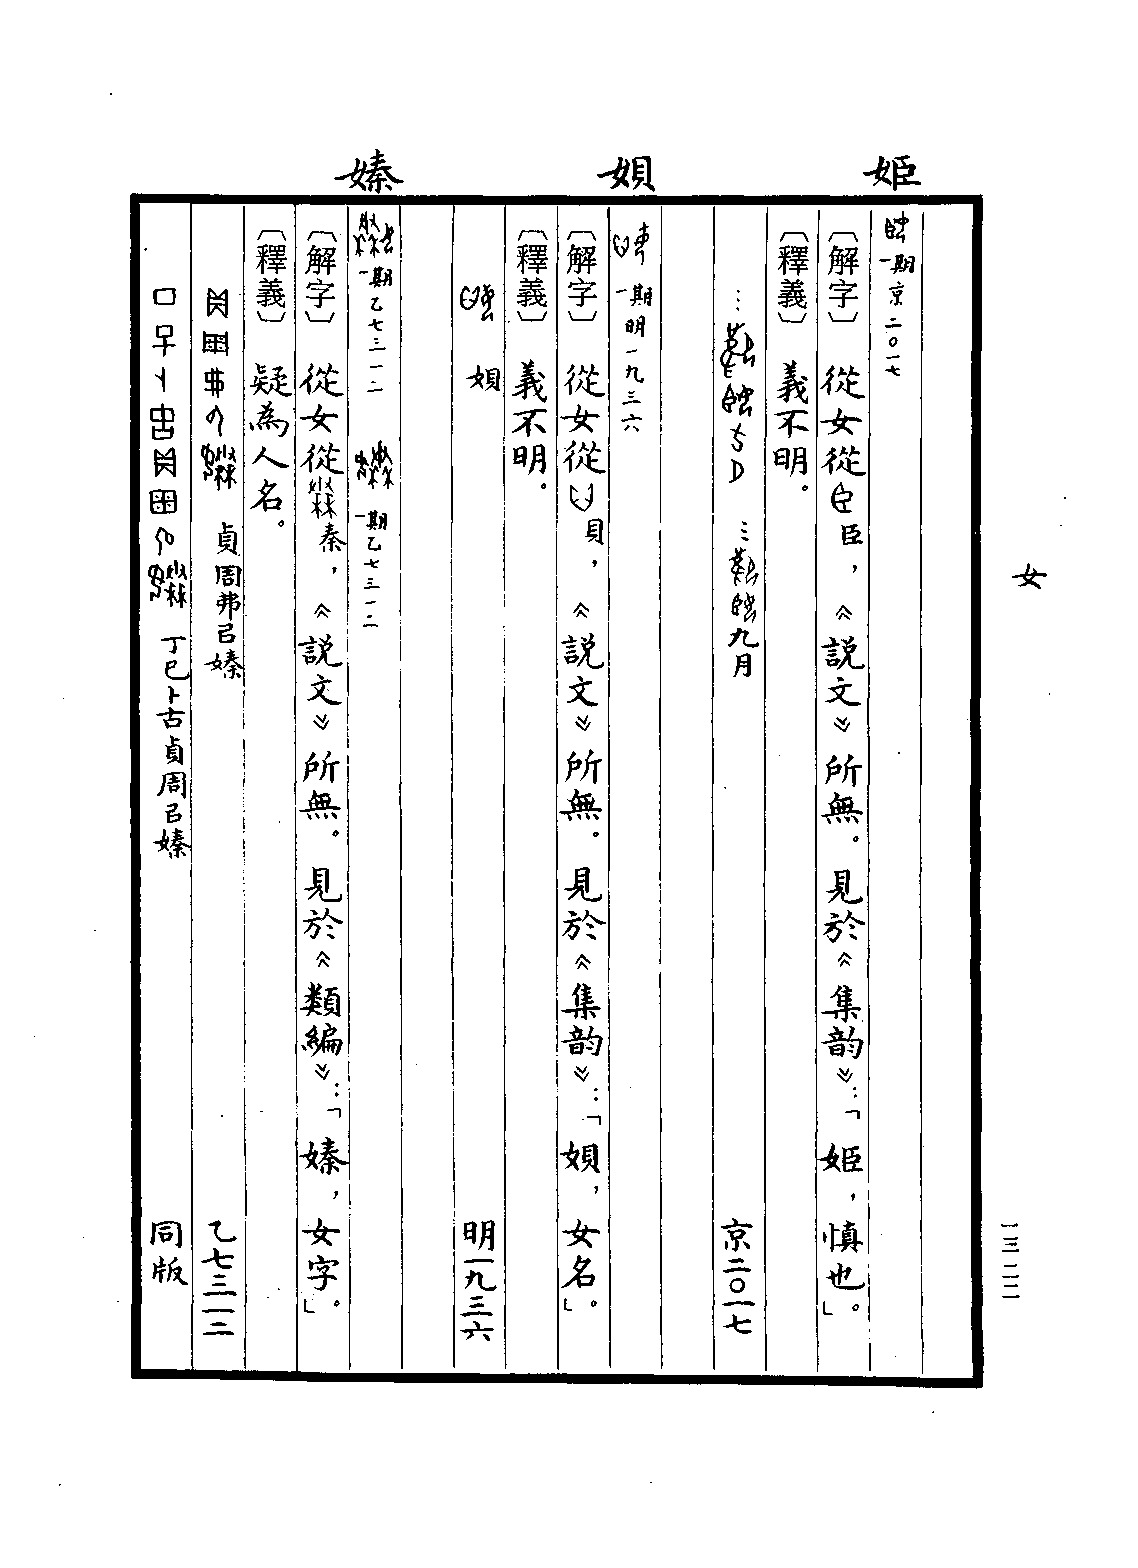 女
一三二二
姫
一期京二〇一七
〔解字〕從女從臣,《說文》所無。見於《集韵》:「姫,慎也」。
〔釋義〕義不明。
…… 九月 京二〇一七
㛝
一期明一九三六
〔解字〕從女從貝,《說文》所無。見於《集韵》:「㛝,女名」。
〔釋義〕義不明。
㛝 明一九三六
嫀
一期乙七三一二 一期乙七三一二
〔解字〕從女從秦,《說文》所無。見於《類編》:「嫀,女字」。
〔釋義〕疑為人名。
貞周弗以嫀 乙七三一二
丁巳卜古貞周以嫀 同版